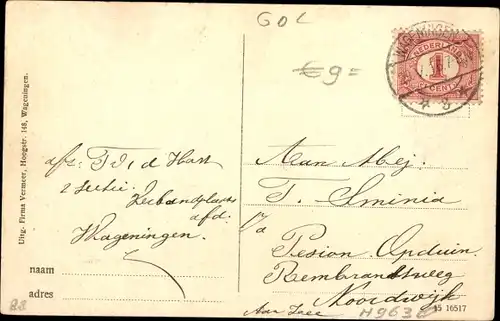 GOL
€ 9 =
WAGENINGEN
NEDERLAND
1
CENT
Uitg. Firma Vermeer, Hoogstr. 148, Wageningen.
afz.
2 sectie
afd.
Wageningen.
naam
adres
Aan Mej.
T. Sminia
Pesion Opduin
Rembrandtsweg
Noordwijk
Aan Zee
15 16517